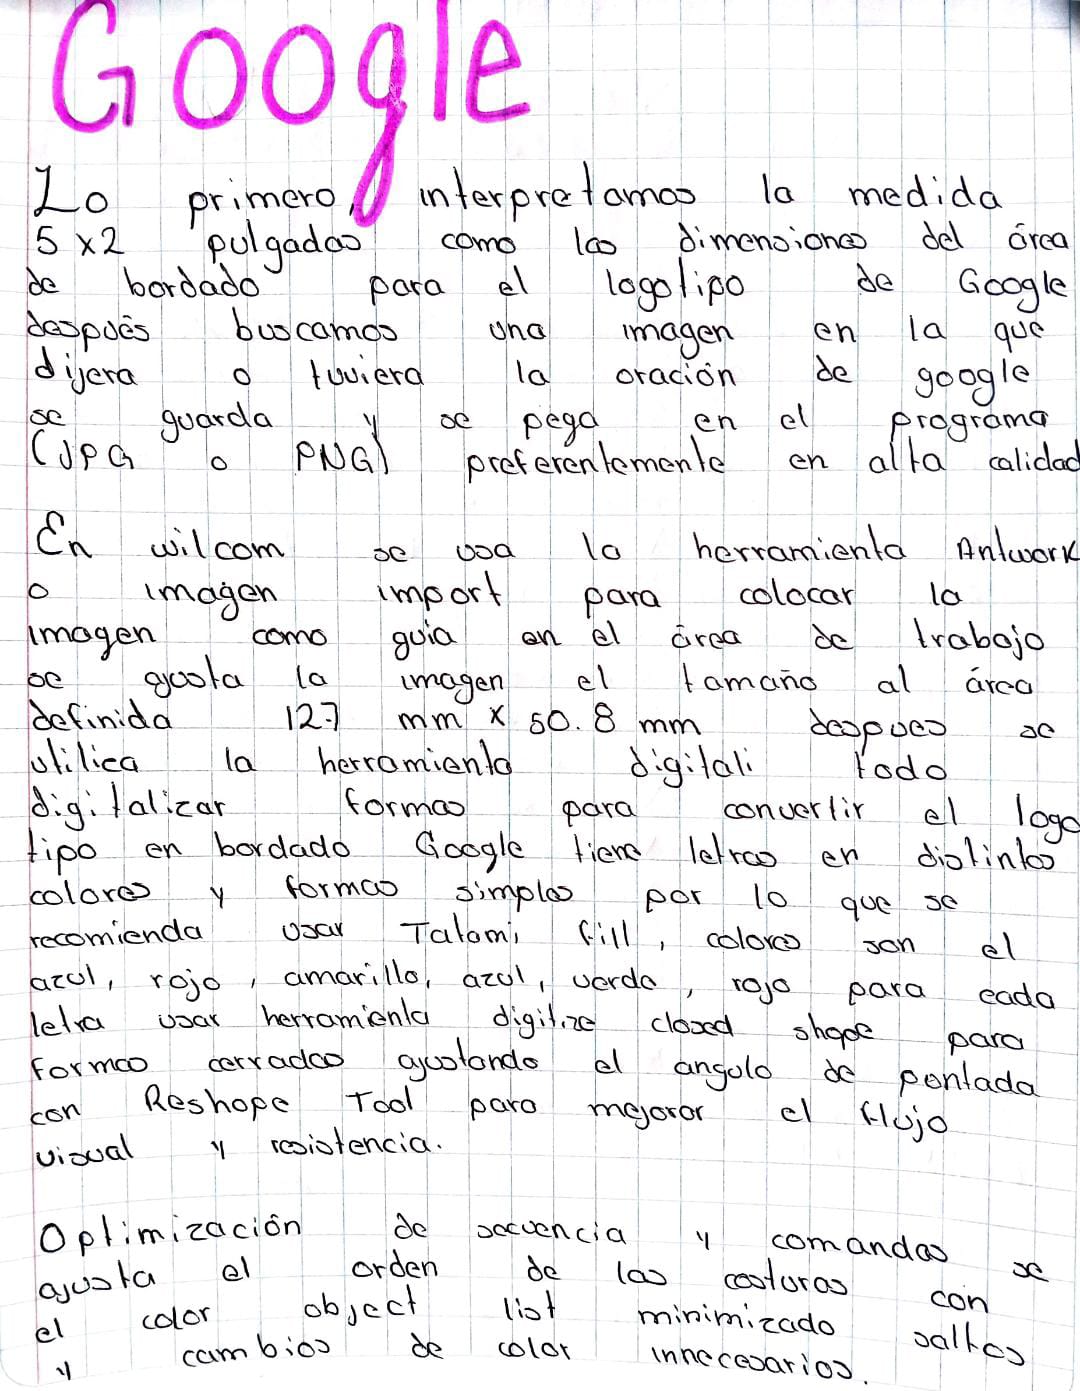 Google
Lo primero, interpretamos la medida
5 x2 pulgadas como las dimensiones del área
de bordado para el logotipo de Google
después buscamos una imagen en la que
dijera o tuviera la oración de google
se guarda y se pega en el programa
(JPG o PNG) preferentemente en alta calidad
En wilcom se usa la herramienta Antwork
o imagen import para colocar la
imagen como guia en el área de trabajo
se ajusta la imagen el tamaño al área
definida 127 mm x 50.8 mm despues se
utilica la herramienta digitali todo
digitalizar formas para convertir el logo
tipo en bordado Google tiene letras en distintos
colores y formas simples por lo que se
recomienda usar Tatami fill, colores son el
azul, rojo, amarillo, azul, verde, rojo para cada
letra usar herramienta digitize closed shape para
formas cerradas ajustando el angulo de pontada
con Reshape Tool para mejorar el flujo
visual y resistencia.
Optimización de secuencia y comandos se
ajusta el orden de las costuras con
el color object list minimizado saltos
y cambios de color innecesarios.